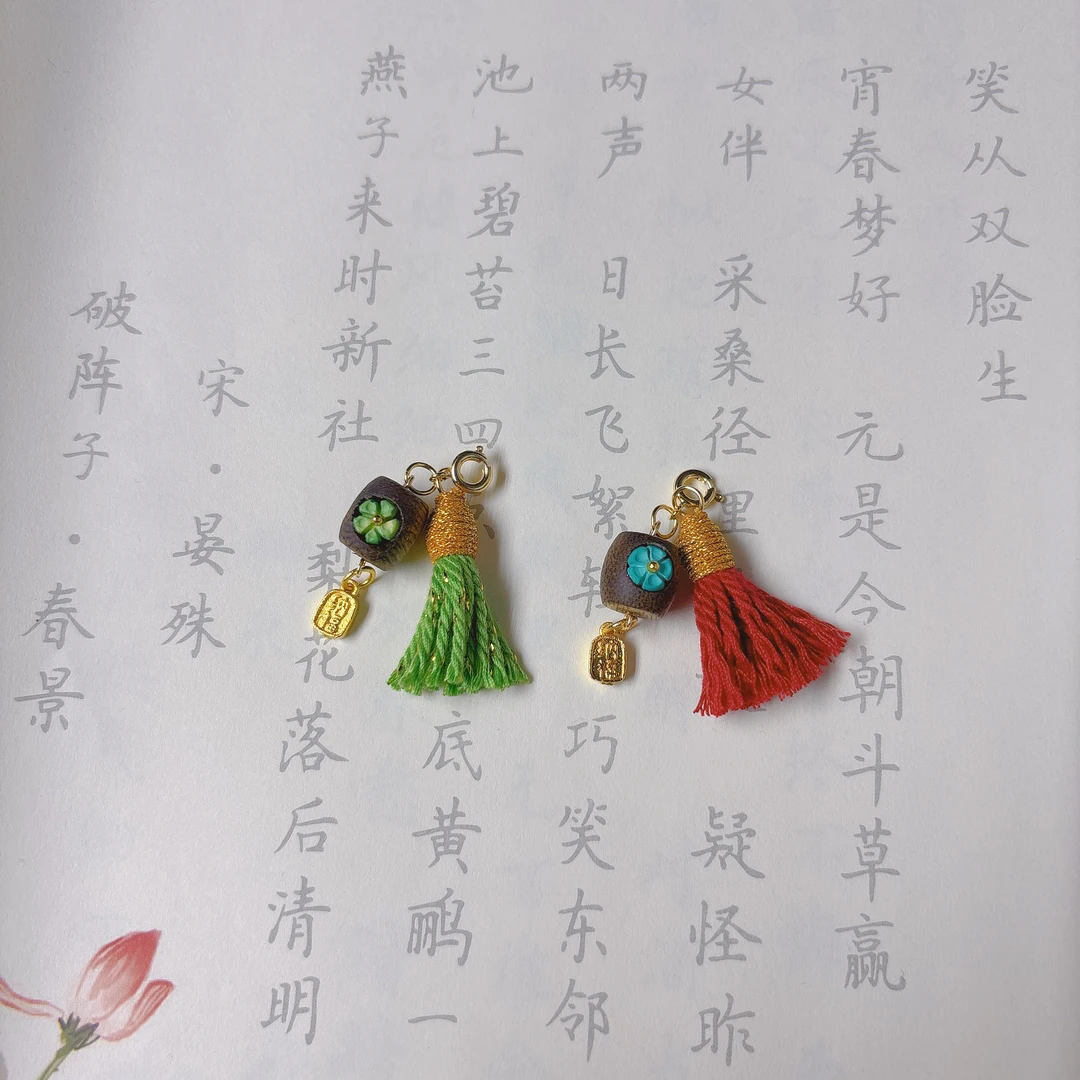 破阵子·春景
宋·晏殊
燕子来时新社 梨花落后清明
池上碧苔三四 底黄鹂一
两声 日长飞絮轻 巧笑东邻
女伴 采桑径里 疑怪昨
宵春梦好 元是今朝斗草赢
笑从双脸生